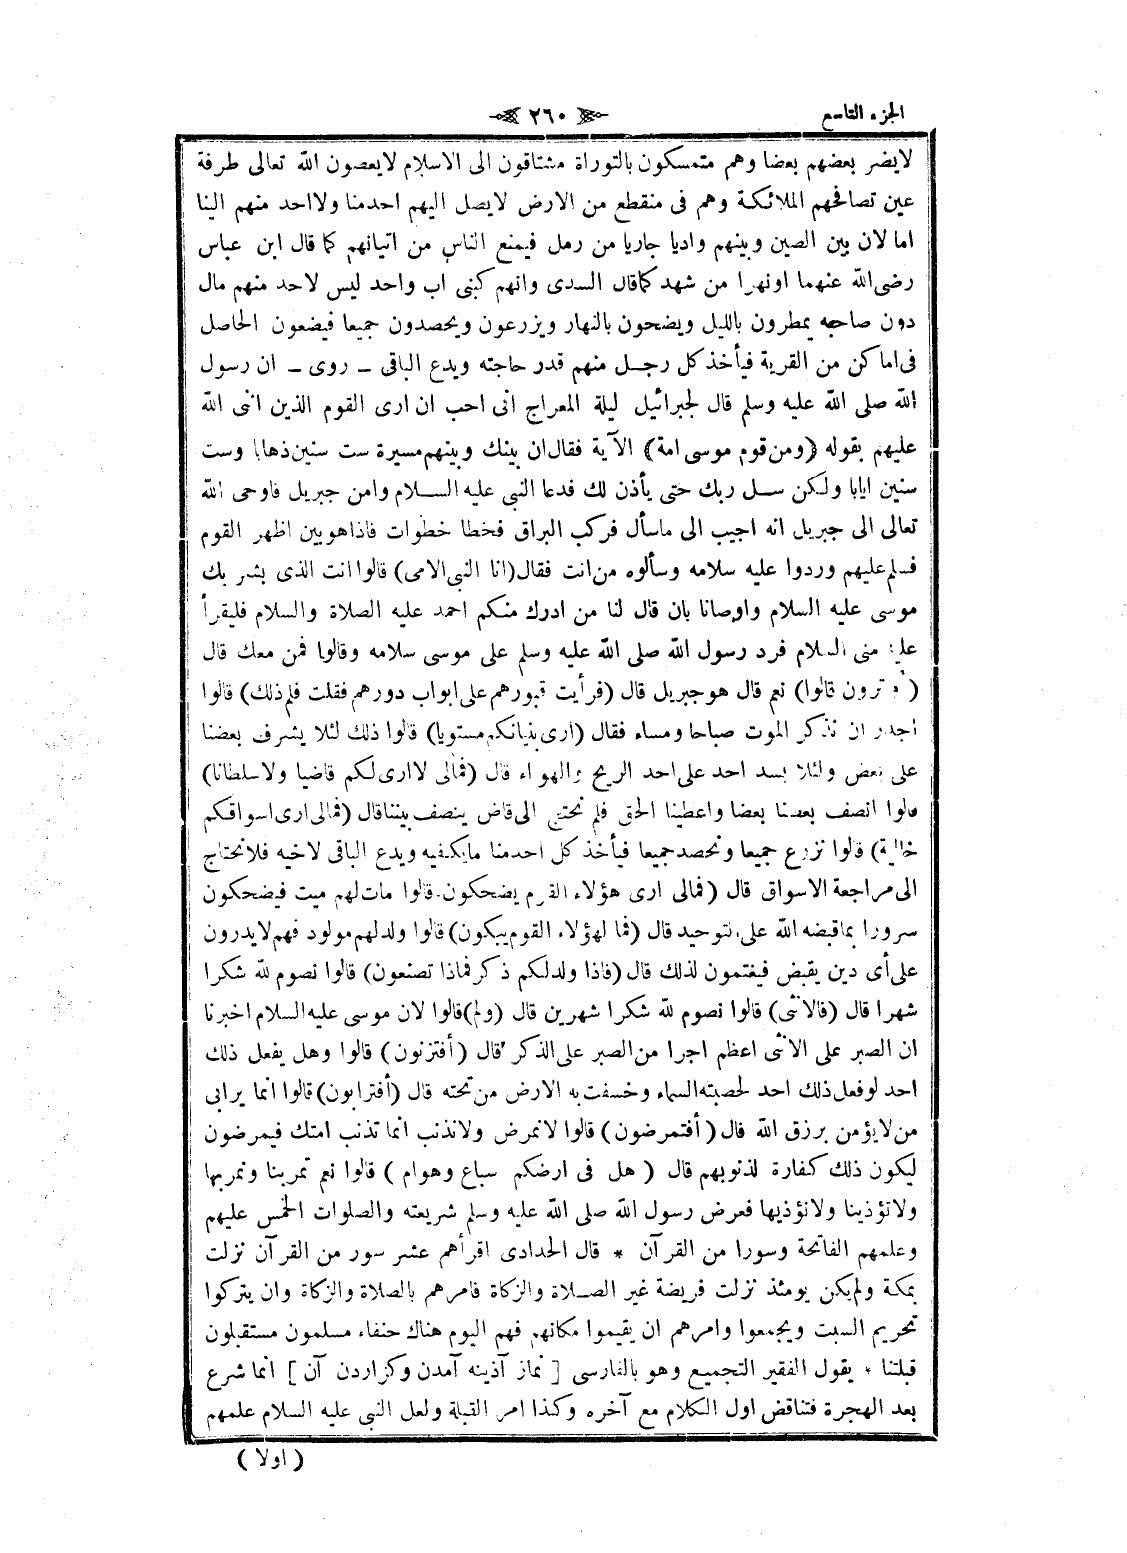 الجزء التاسع
٢٦٠
لايضر بعضهم بعضا وهم متمسكون بالتوراة مشتاقون الى الاسلام لايعصون الله تعالى طرفة
عين تصافحهم الملائكة وهم فى منقطع من الارض لايصل اليهم احدمنا ولااحد منهم الينا
اما لان بين الصين وبينهم واديا جاريا من رمل فيمنع الناس من اتيانهم كما قال ابن عباس
رضى الله عنهما اونهرا من شهد كماقال السدى وانهم كبنى اب واحد ليس لاحد منهم مال
دون صاحبه يمطرون بالليل ويضحون بالنهار ويزرعون ويحصدون جميعا فيضعون الحاصل
فى اماكن من القرية فيأخذ كل رجل منهم قدر حاجته ويدع الباقى ــ روى ــ ان رسول
الله صلى الله عليه وسلم قال لجبرائيل ليلة المعراج انى احب ان ارى القوم الذين اثنى الله
عليهم بقوله (ومن قوم موسى امة) الآية فقال ان بينك وبينهم مسيرة ست سنين ذهابا وست
سنين ايابا ولكن سل ربك حتى يأذن لك فدعا النبى عليه السلام وامن جبريل فاوحى الله
تعالى الى جبريل انه اجيب الى ماسأل فركب البراق فخطا خطوات فاذاهو بين اظهر القوم
فسلم عليهم وردوا عليه سلامه وسألوه من انت فقال (انا النبى الامى) قالوا انت الذى بشر بك
موسى عليه السلام واوصانا بان قال لنا من ادرك منكم احمد عليه الصلاة والسلام فليقرأ
عليه منى السلام فرد رسول الله صلى الله عليه وسلم على موسى سلامه وقالوا فمن معك قال
(أو ترون قالوا) نعم قال هو جبريل قال (فرأيت قبورهم على ابواب دورهم فقلت فلم ذلك) قالوا
اجدر ان نذكر الموت صباحا ومساء فقال (ارى بنيانكم مستويا) قالوا ذلك لئلا يشرف بعضنا
على بعض ولئلا يسد احد على احد الريح والهواء قال (فمالى لاارى لكم قاضيا ولاسلطانا)
قالوا انصف بعضنا بعضا واعطينا الحق فلم نحتج الى قاض ينصف بيننا قال (فمالى ارى اسواقكم
خالية) قالوا نزرع جميعا ونحصد جميعا فيأخذ كل احدمنا مايكفيه ويدع الباقى لاخيه فلانحتاج
الى مراجعة الاسواق قال (فمالى ارى هؤلاء القوم يضحكون) قالوا مات لهم ميت فيضحكون
سرورا بماقبضه الله على التوحيد قال (فما لهؤلاء القوم يبكون) قالوا ولدلهم مولود فهم لايدرون
على أى دين يقبض فيغتمون لذلك قال (فاذا ولدلكم ذكر فماذا تصنعون) قالوا نصوم لله شكرا
شهرا قال (فالانثى) قالوا نصوم لله شكرا شهرين قال (ولم) قالوا لان موسى عليه السلام اخبرنا
ان الصبر على الانثى اعظم اجرا من الصبر على الذكر قال (أفتزنون) قالوا وهل يفعل ذلك
احد لوفعل ذلك احد لحصبته السماء وخسفت به الارض من تحته قال (أفترابون) قالوا انما يرابى
من لايؤمن برزق الله قال (أفتمرضون) قالوا لانمرض ولانذنب انما تذنب امتك فيمرضون
ليكون ذلك كفارة لذنوبهم قال (هل فى ارضكم سباع وهوام) قالوا نعم تمربنا ونمربها
ولاتؤذينا ولانؤذيها فعرض رسول الله صلى الله عليه وسلم شريعته والصلوات الخمس عليهم
وعلمهم الفاتحة وسورا من القرآن * قال الحدادى اقرأهم عشر سور من القرآن نزلت
بمكة ولم يكن يومئذ نزلت فريضة غير الصلاة والزكاة فامرهم بالصلاة والزكاة وان يتركوا
تحريم السبت ويجمعوا وامرهم ان يقيموا مكانهم فهم اليوم هناك حنفاء مسلمون مستقبلون
قبلتنا * يقول الفقير التجميع وهو بالفارسى [نماز آذينه آمدن وكزاردن آن] انما شرع
بعد الهجرة فتناقض اول الكلام مع آخره وكذا امر القبلة ولعل النبى عليه السلام علمهم
(اولا)